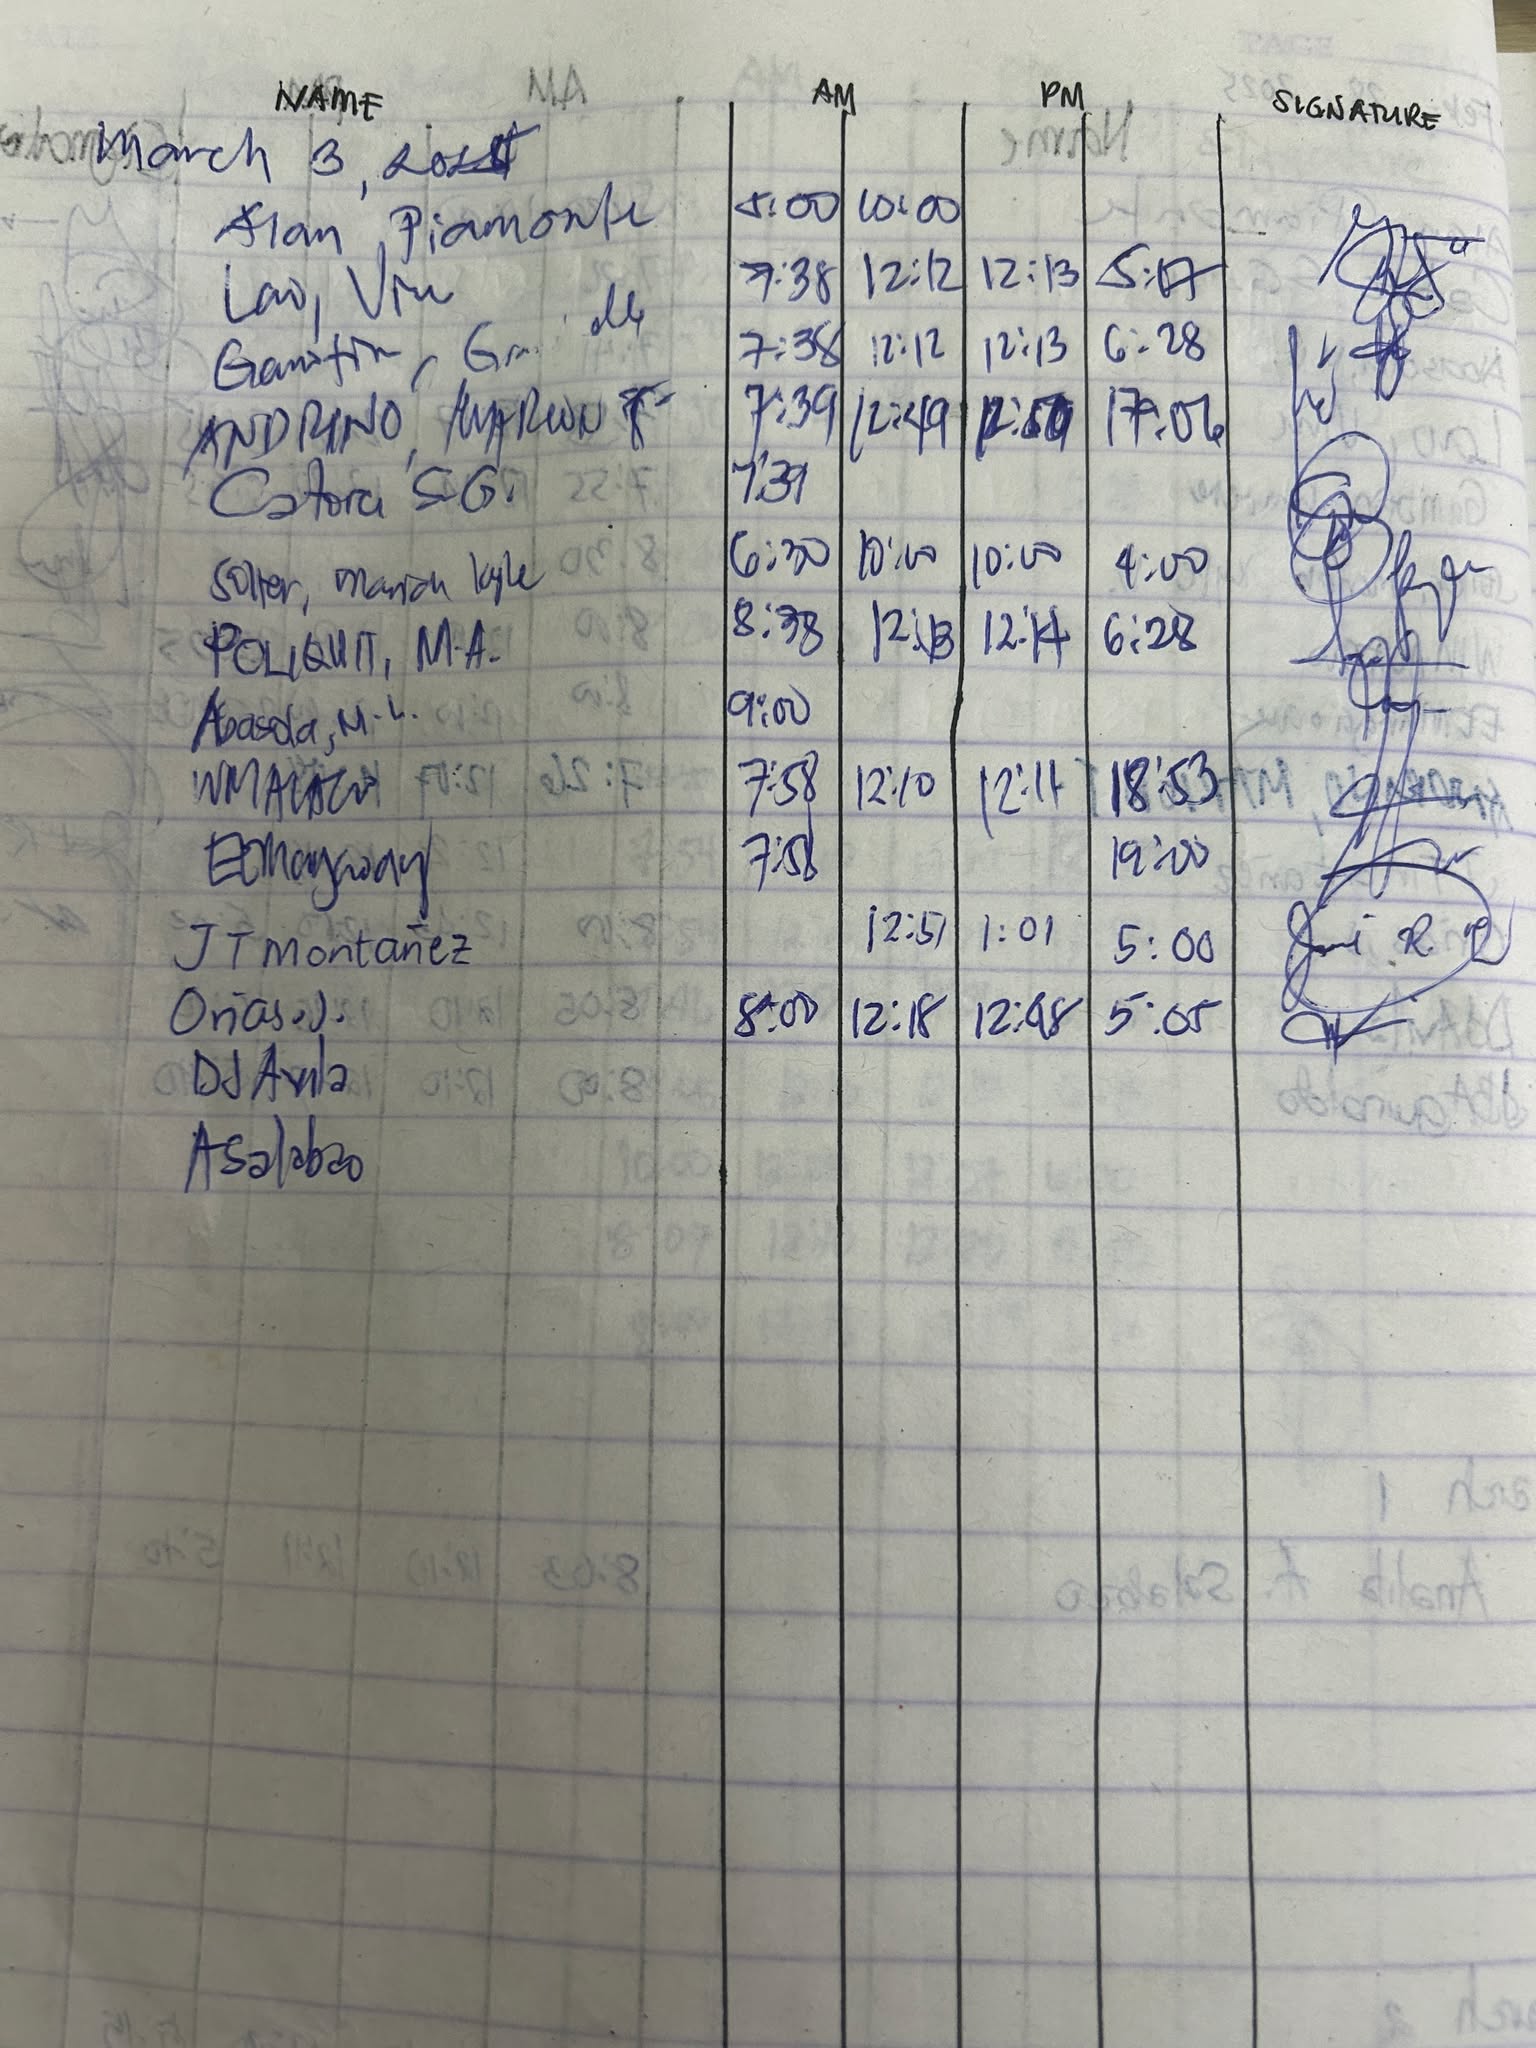 NAME AM PM SIGNATURE
March 3, 2025
Alan Piamonte 5:00 10:00
Lao, 7:38 12:12 12:13 5:17
7:38 12:12 12:13 6:28
ANDRINO, MARLON 7:39 12:49 12:50 17:06
Catora S.G. 7:39
Solter, Mariah Kyle 6:30 10:00 10:00 4:00
POLIQUIT, M.A. 8:38 12:13 12:14 6:28
Abasola, M.L. 9:00
7:58 12:10 12:11 18:53
7:58 19:00
JT Montañez 12:51 1:01 5:00
Orias.J. 8:00 12:18 12:48 5:05
DJ Avila
ASalabao